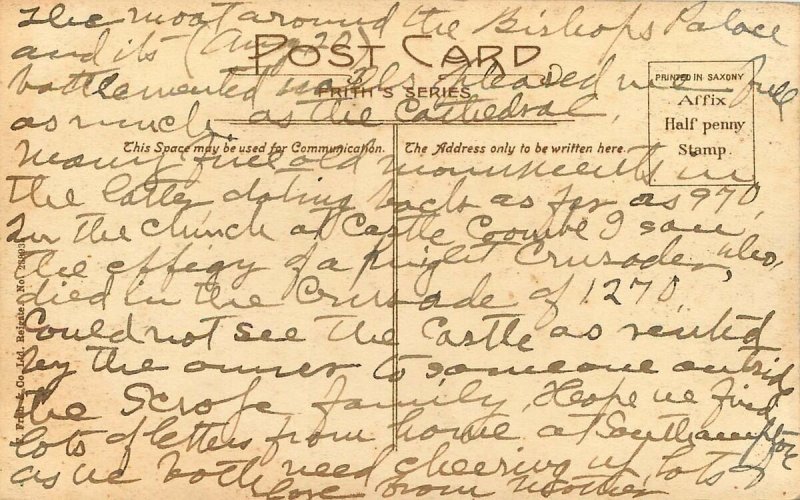 The moat around the Bishops Palace
and its (Aug 22)
POST CARD
battlemented walls pleased me full
FRITH'S SERIES
PRINTED IN SAXONY
Affix
Half penny
Stamp.
as much as the Cathedral,
This Space may be used for Communication.
The Address only to be written here.
Many fine old monuments in
the latter dating back as far as 970,
In the church at Castle Coombe I saw
the effigy of a Knight Crusader who,
died in the Crusade of 1270,
Could not see the Castle as rented
by the owner to someone outside
the Scrope family, Hope we find
lots of letters from home at Southampton
as we both need cheering up, lots of
love from Mother
F. Frith & Co. Ltd. Reigate. No.